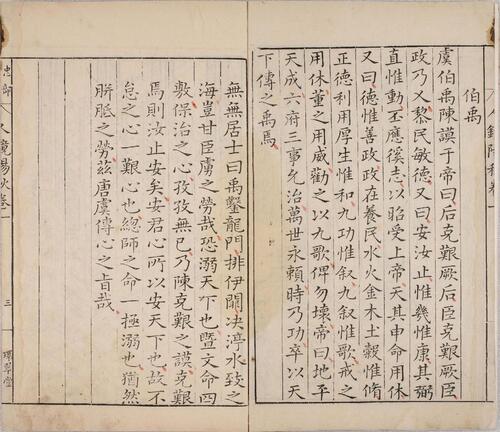 伯禹
虞伯禹陳謨于帝曰后克艱厥后臣克艱厥臣
政乃乂黎民敏德又曰安汝止惟幾惟康其弼
直惟動丕應徯志以昭受上帝天其申命用休
又曰德惟善政政在養民水火金木土穀惟脩
正德利用厚生惟和九功惟叙九叙惟歌戒之
用休董之用威勸之以九歌俾勿壞帝曰地平
天成六府三事允治萬世永賴時乃功卒以天
下傳之禹焉
無無居士曰禹鑿龍門排伊闕決渟水致之
海豈甘臣虜之勞哉恐溺天下也暨文命四
敷保治之心孜孜無已乃陳克艱之謨克艱
焉則汝止安矣安君心所以安天下也故不
怠之心一艱心也總師之命一極溺也猶然
胼胝之勞茲唐虞傳心之旨哉
忠部 人鏡陽秋卷一 三 環翠堂